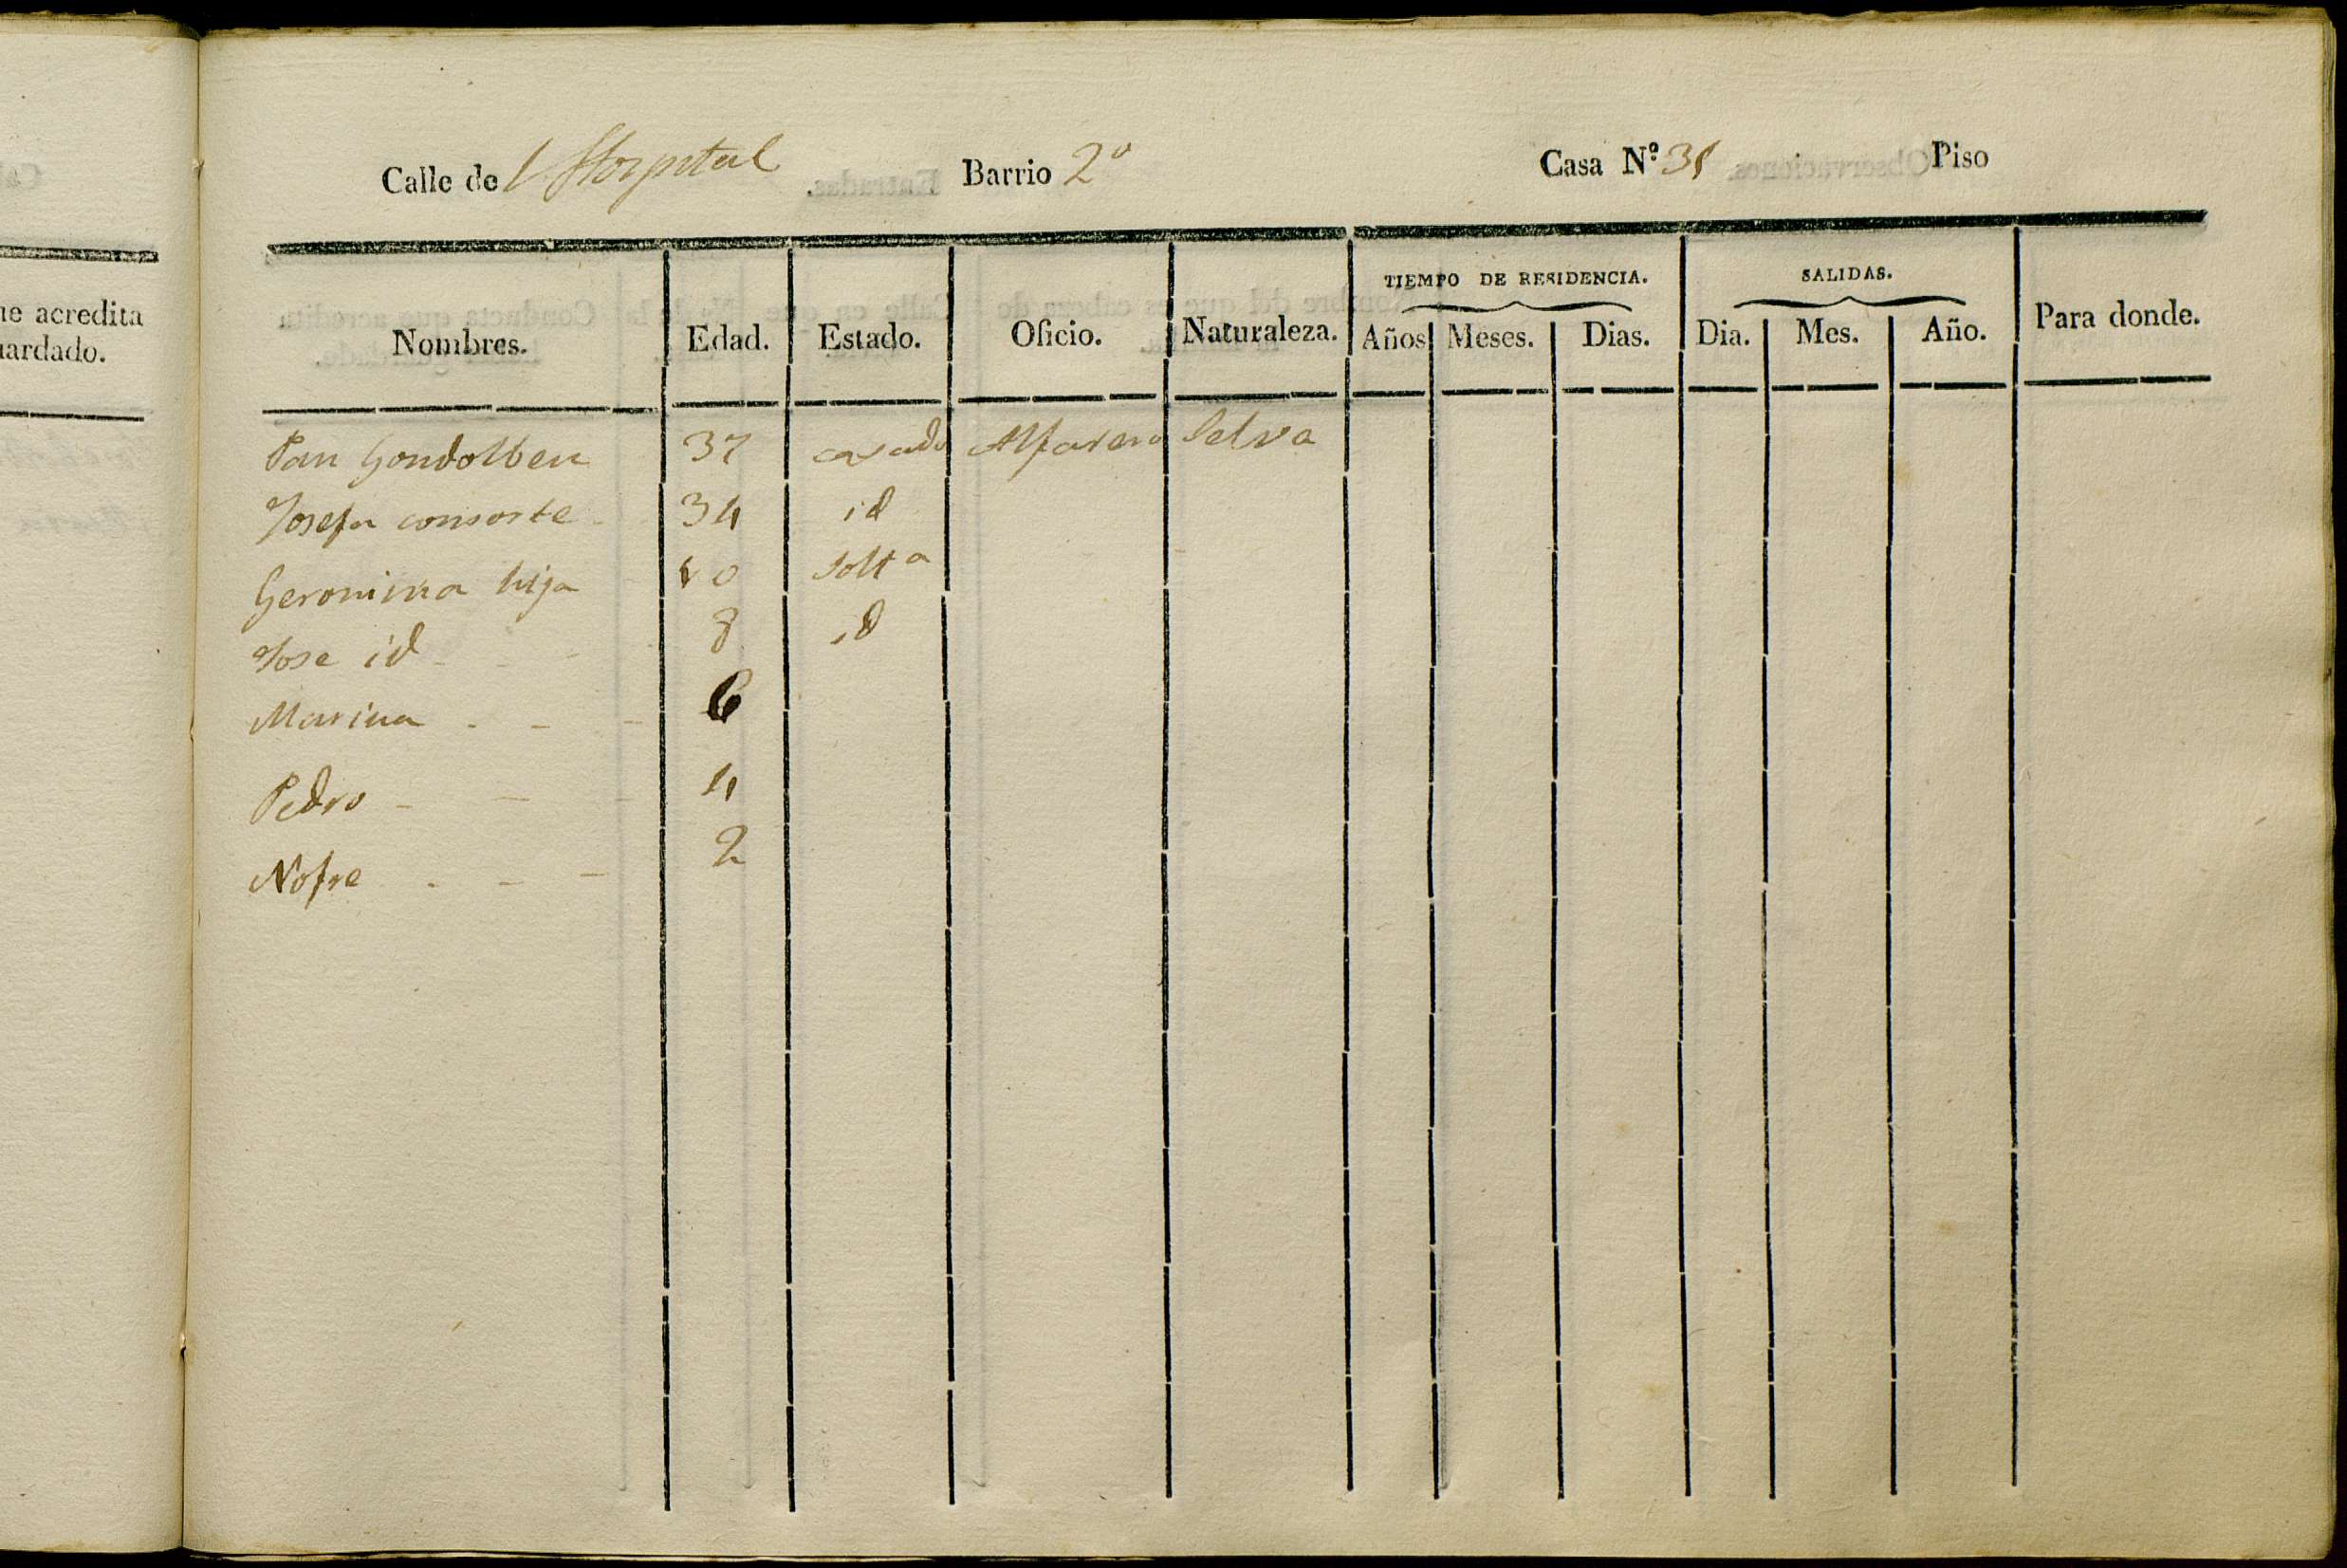 ue acredita
uardado.
Calle del Hospital Barrio 2º Casa Nº 31 Piso
TIEMPO DE RESIDENCIA. SALIDAS.
Nombres. Edad. Estado. Oficio. Naturaleza. Años Meses. Dias. Dia. Mes. Año. Para donde.
Pau Gondolbeu 37 casado Alfarero Selva
Josefa consorte 34 id
Geronima hija 10 solta
Jose id 8 id
Marina 6
Pedro 4
Nofre 2